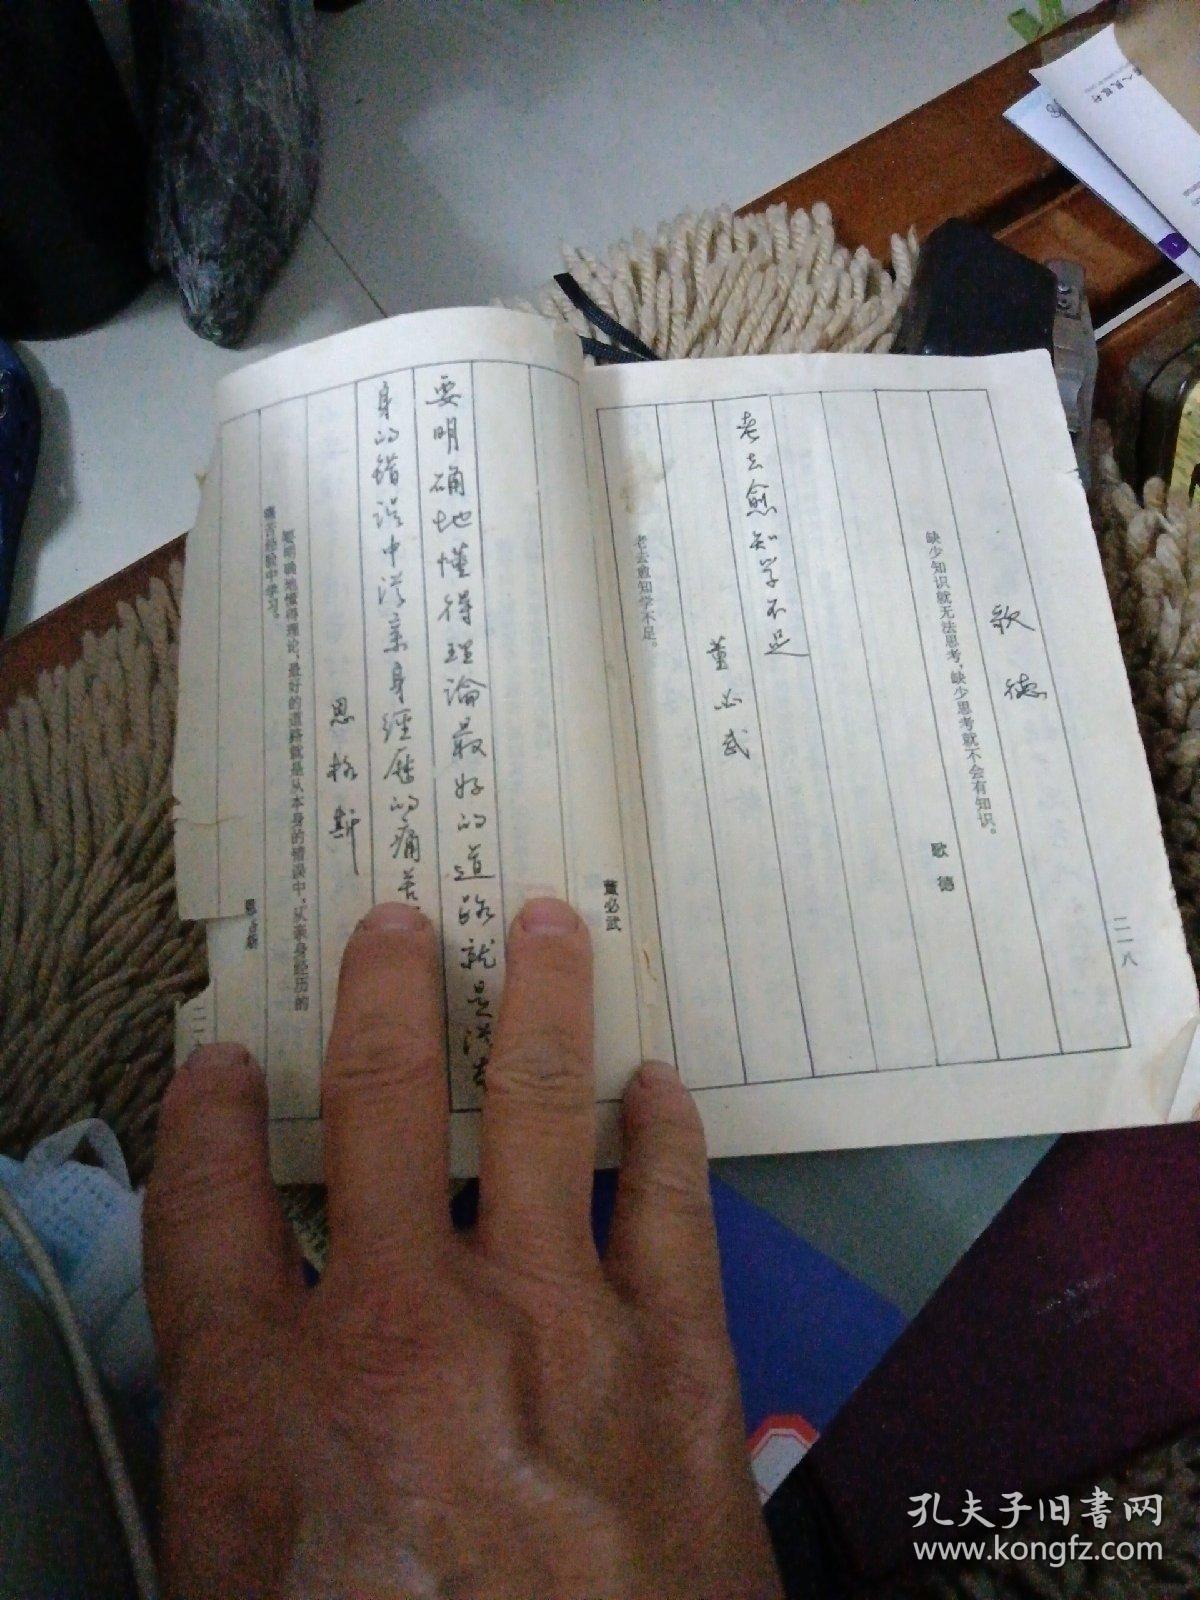 歌德
缺少知识就无法思考,缺少思考就不会有知识。
歌德
二一八
老去愈知学不足
董必武
老去愈知学不足。
董必武
要明确地懂得理论最好的道路就是从本
身的错误中从亲身经历的痛苦
恩格斯
要明确地懂得理论,最好的道路就是从本身的错误中,从亲身经历的
痛苦经验中学习。
恩格斯
二一
孔夫子旧书网
www.kongfz.com